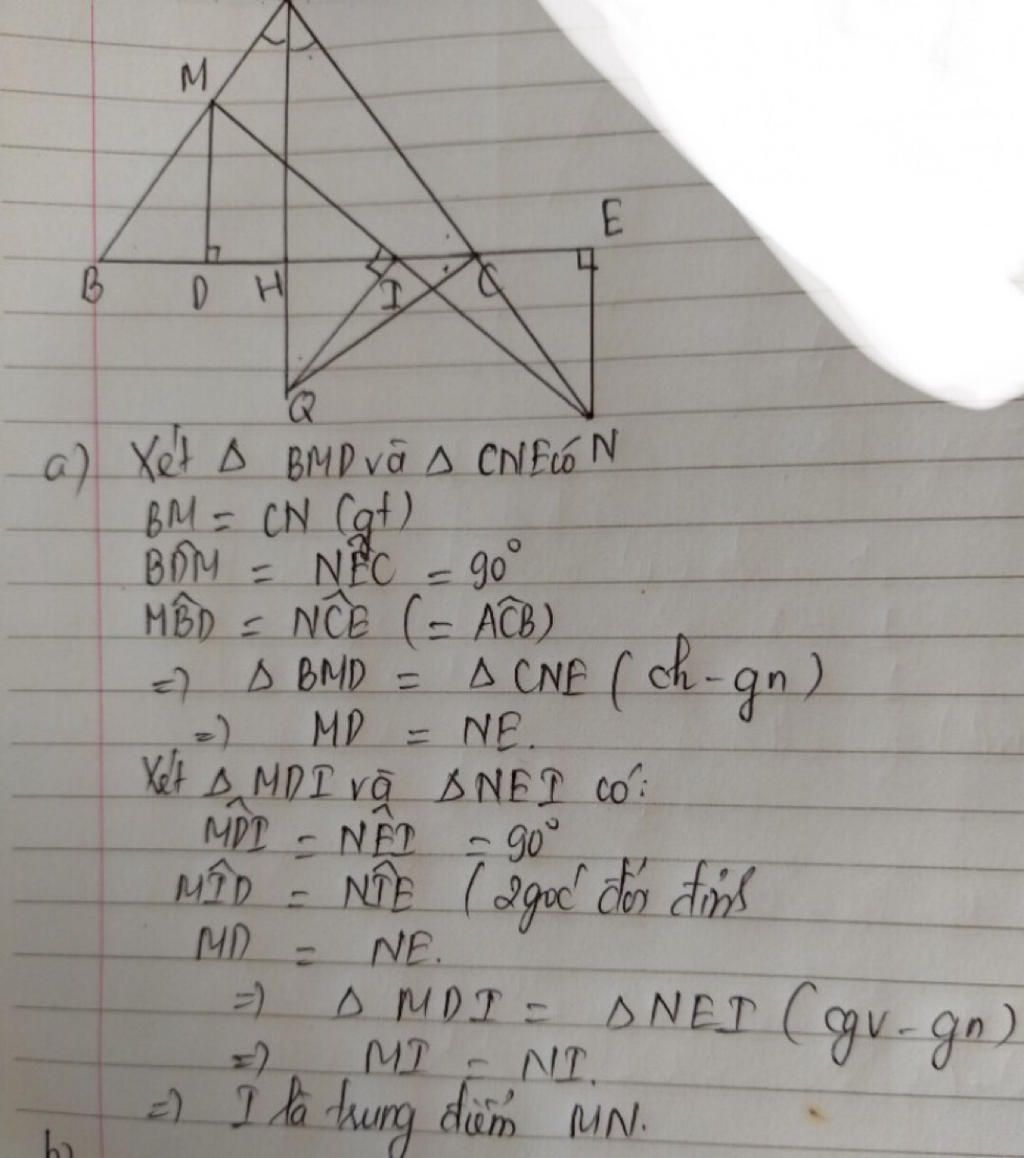 M
E
B D H I C
Q
N
a) Xét Δ BMD và Δ CNE có
BM = CN (gt)
BD̂M = NÊC = 90°
MB̂D = NĈE (= AĈB)
=> Δ BMD = Δ CNE (ch - gn)
=> MD = NE.
Xét Δ MDI và Δ NEI có:
MD̂I = NÊI = 90°
MÎD = NÎE (2 góc đối đỉnh
MD = NE.
=> Δ MDI = Δ NEI (cgv - gn)
=> MI = NI.
=> I là trung điểm MN.
b)